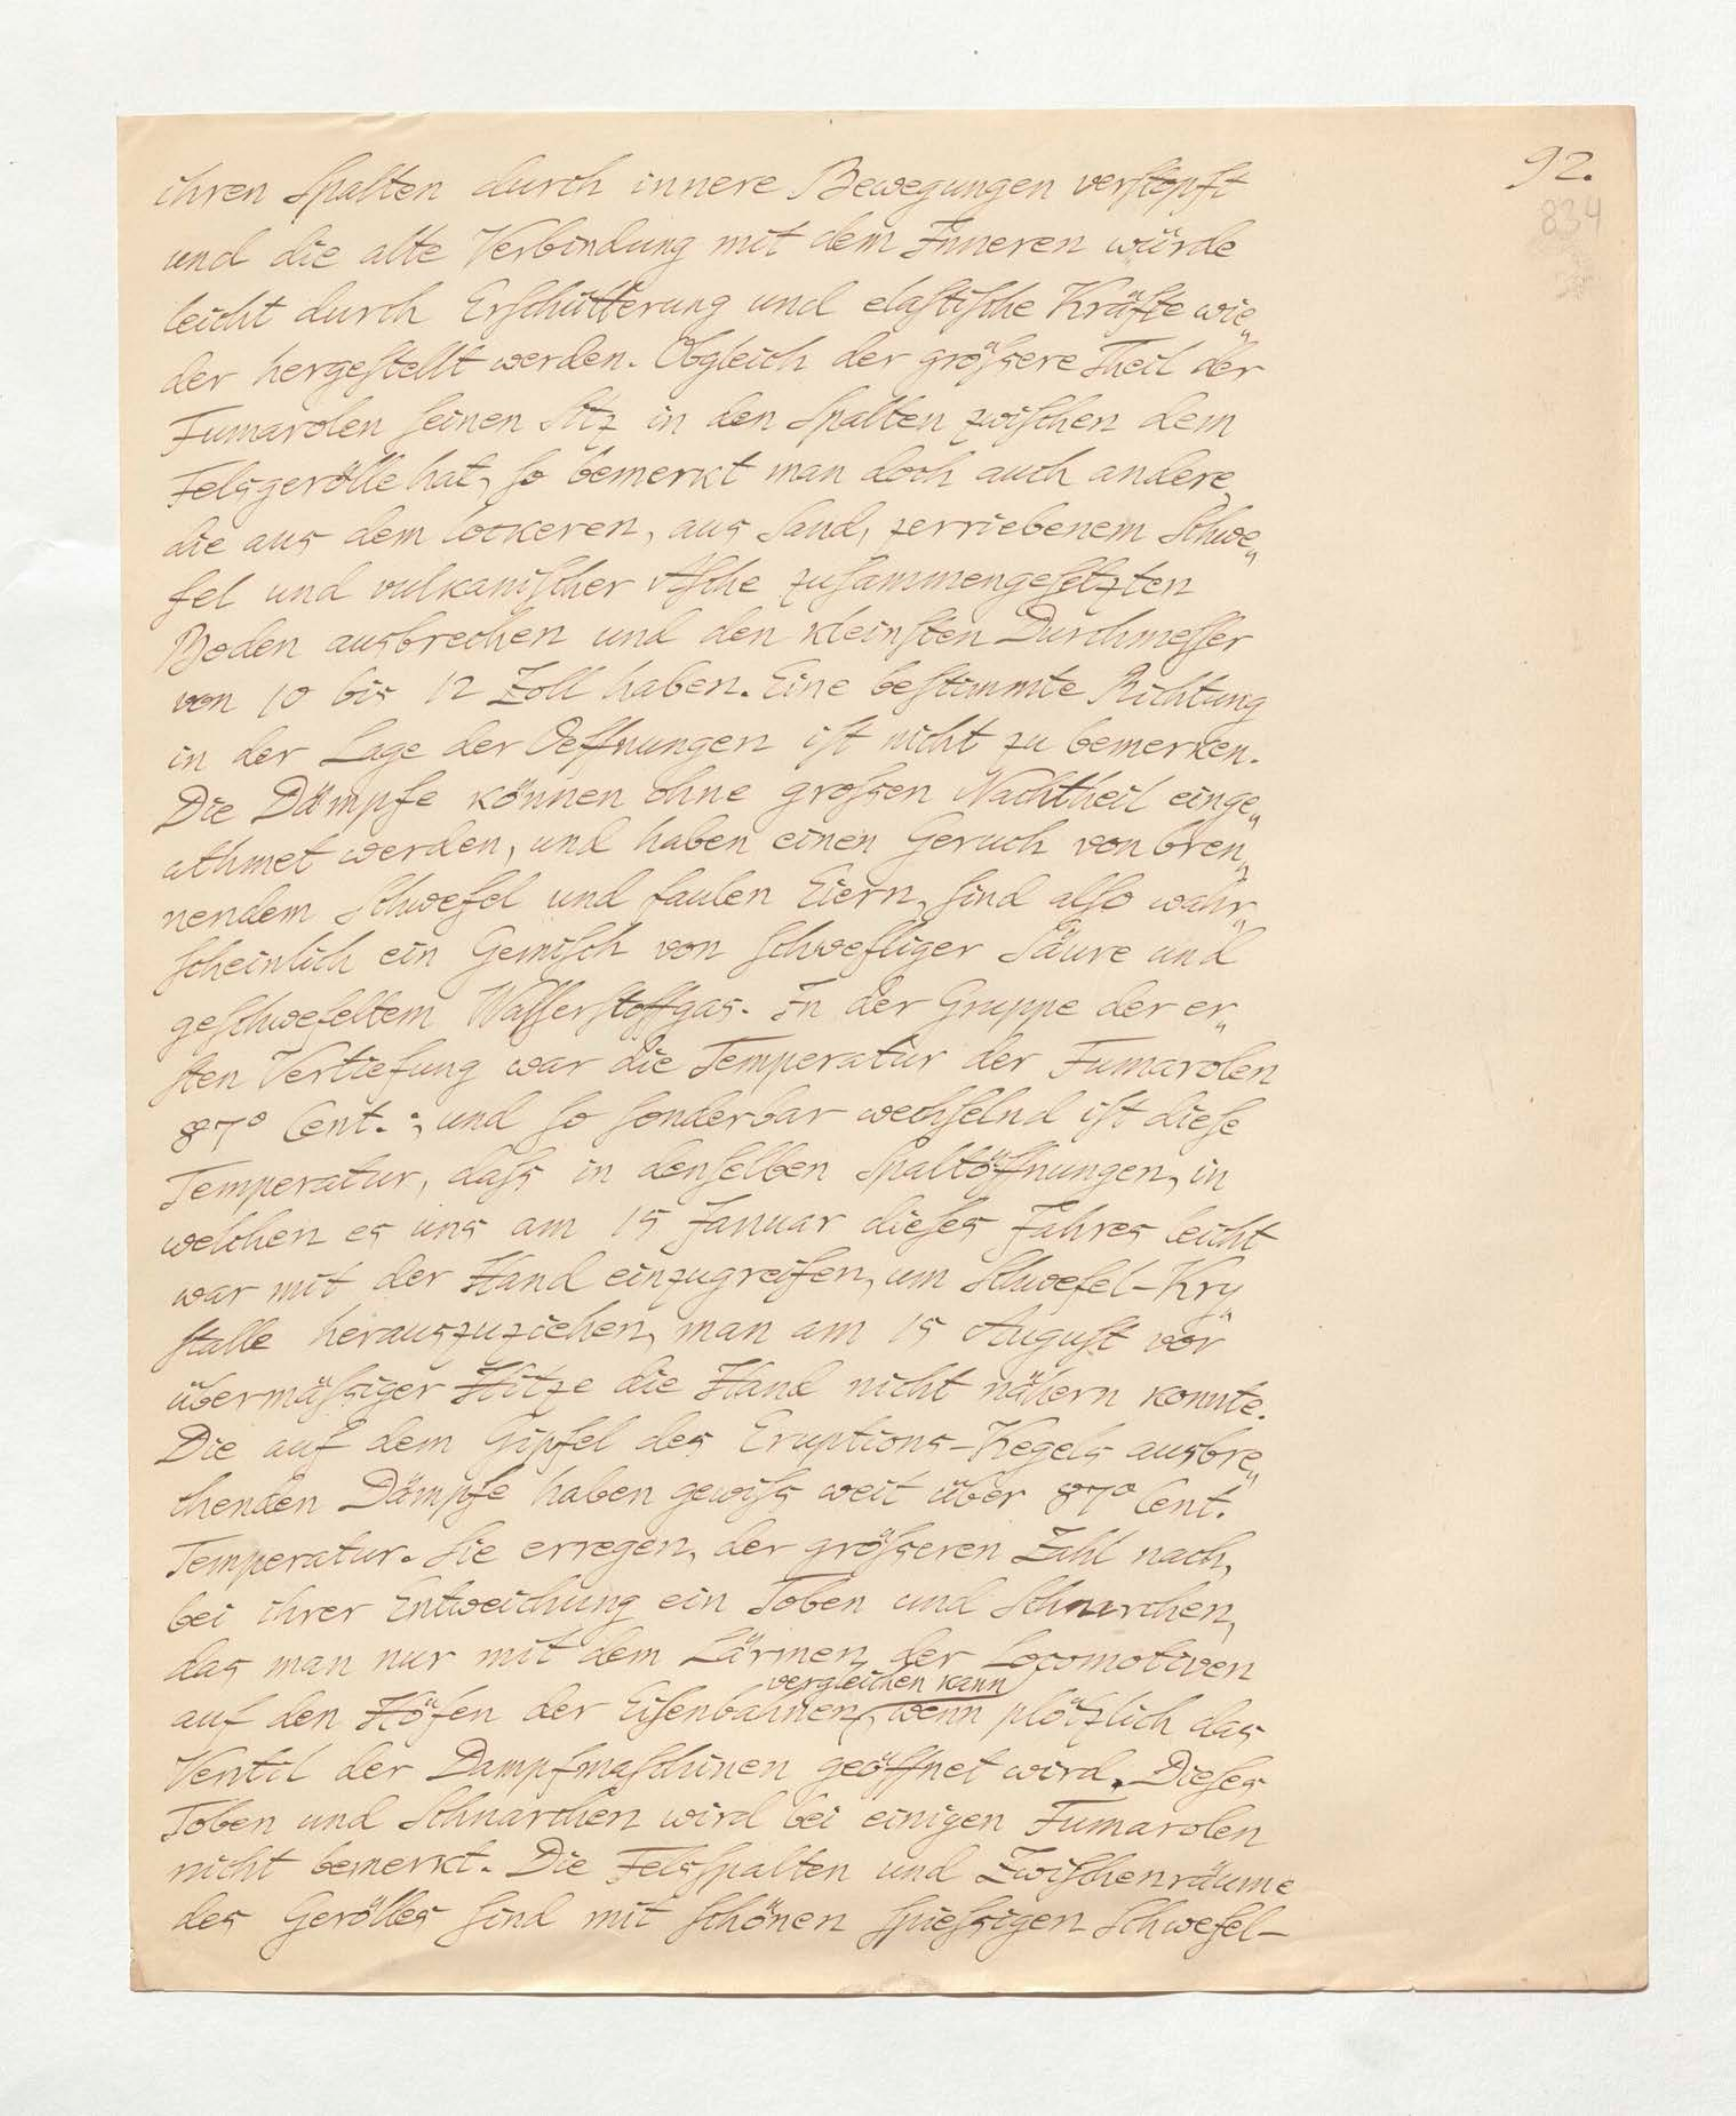 92.
834
ihren Spalten durch innere Bewegungen verstopft
und die alte Verbindung mit dem Inneren würde
leicht durch Erschütterung und elastische Kräfte wie„
der hergestellt werden. Obgleich der grössere Theil der
Fumarolen seinen Sitz in den Spalten zwischen dem
Felsgerölle hat, so bemerkt man doch auch andere,
die aus dem lockeren, aus Sand, zerriebenem Schwe„
fel und vulkanischer Asche zusammengesetzten
Boden ausbrechen und den kleinsten Durchmesser
von 10 bis 12 Zoll haben. Eine bestimmte Richtung
in der Lage der Oeffnungen ist nicht zu bemerken.
Die Dämpfe können ohne grossen Nachtheil einge„
athmet werden, und haben einen Geruch von bren„
nendem Schwefel und faulen Eiern, sind also wahr„
scheinlich ein Gemisch von schwefliger Säure und
geschwefeltem Wasserstoffgas. In der Gruppe der er„
sten Vertiefung war die Temperatur der Fumarolen
87° Cent.; und so sonderbar wechselnd ist diese
Temperatur, dass in denselben Spaltöffnungen, in
welchen es uns am 15 Januar dieses Jahres leicht
war mit der Hand einzugreifen, um Schwefel-Kry„
stalle herauszuziehen, man am 15 August vor
übermässiger Hitze die Hand nicht nähern konnte.
Die auf dem Gipfel des Eruptions-Kegels ausbre„
chenden Dämpfe haben gewiss weit über 87° Cent.
Temperatur. Sie erregen, der grösseren Zahl nach,
bei ihrer Entweichung ein Toben und Schnarchen,
das man nur mit dem Lärmen der Locomotiven
vergleichen kann
auf den Höfen der Eisenbahnen, wenn plötzlich das
Ventil der Dampfmaschinen geöffnet wird. Dieses
Toben und Schnarchen wird bei einigen Fumarolen
nicht bemerkt. Die Felsspalten und Zwischenräume
des Gerölles sind mit schönen spiessigen Schwefel-